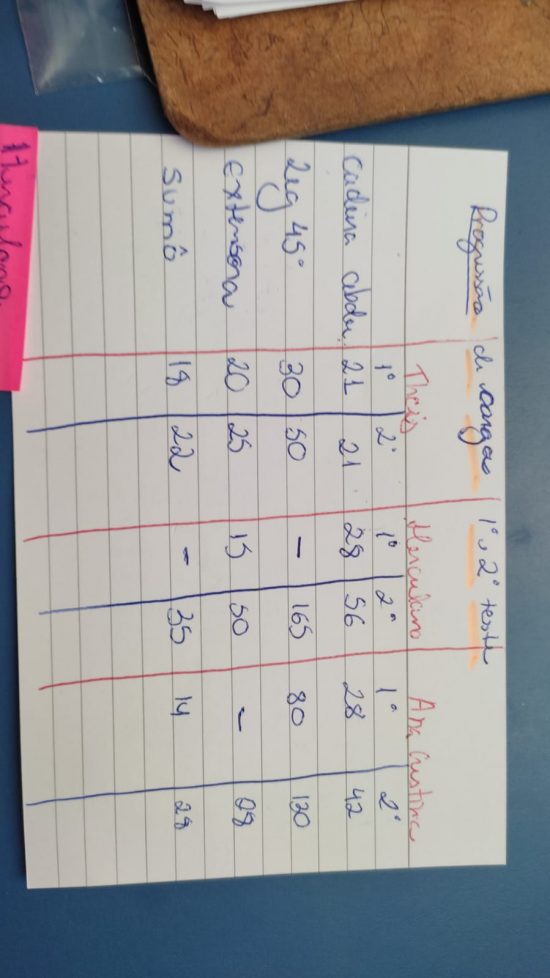 Progressão de carga 1° e 2° teste
Theis Herculano Ana Cristina
1° 2° 1° 2° 1° 2°
cadeira abdu. 21 21 28 56 28 42
Leg 45° 30 50 - 165 80 130
extensora 20 25 15 50 - 08
Sumô 18 22 - 35 14 28
Herculano